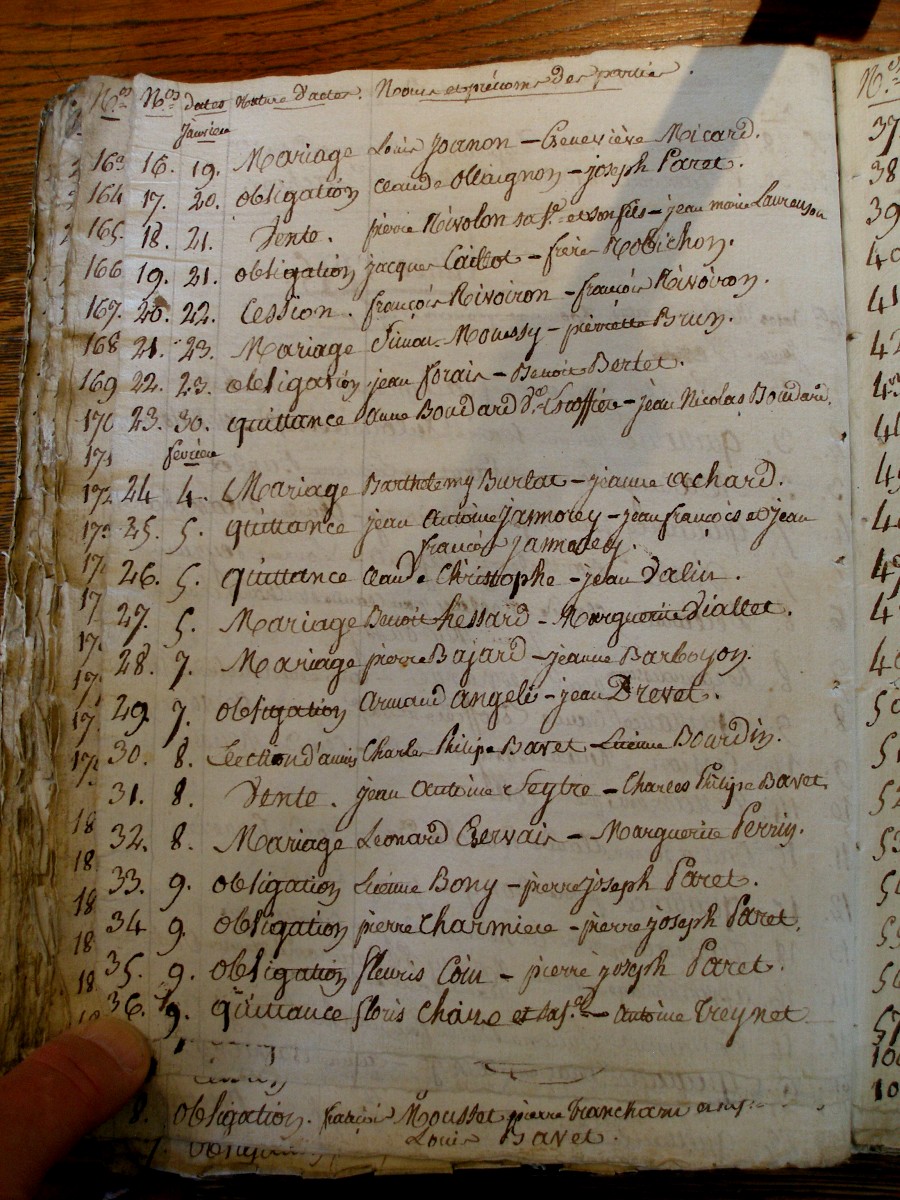 N.os N.os dates Nature d'actes. Noms et prénoms des parties.
Janvier
163 16. 19. Mariage Louis Journon - Geneviève Micard.
164 17. 20. obligation Claude Ollaignon - joseph Paret.
165. 18. 21. Vente. pierre Rivolon sa f.e et son fils - jean marie Laurenson
166 19. 21. obligation jacques Caillot - frère Robichon.
167. 20. 22. Cession. françois Rivoiron - françois Rivoiron.
168 21. 23. Mariage Simon Moussy - pierrette Brun.
169 22. 23. obligation jean forais - Benoit Bertet.
170 23. 30. quittance anne Boudard - jean Nicolas Boudard.
171 février
172 24 4. Mariage Barthelemy Burlat - jeanne achard.
173 25. 5. quittance jean Antoine Jamorey - jean françois et jean
françois Jamorey.
17 26. 5. quittance Claude Christophe - jean Valin.
17 27. 5. Mariage Benoit hessard - Marguerite Viallet.
17. 28. 7. Mariage pierre Bajard - jeanne Barboyon.
17. 29. 7. obligation Armand angeli - jean Drevet.
17. 30. 8. Charles Philipe Bavet Bourdin.
17. 31. 8. Vente. jean Antoine Seytre - Charles Philipe Bavet
18 32. 8. Mariage Leonard Gervais - Marguerite Perrin.
18 33. 9. obligation Bony - pierre joseph Paret.
18 34 9. obligation pierre Charmiere - pierre joseph Paret.
18 35. 9. obligation fleuris Coin - pierre joseph Paret.
18 36. 9. quittance floris Chaine et sa f.e - Antoine Treynet
8. obligation. françois Mousset pierre Tranchant
Louis Bavet.
N.os
37
38
39
40
41
42
43
44
45
46
47
48
49
50
51
52
53
54
55
56
57
100
10